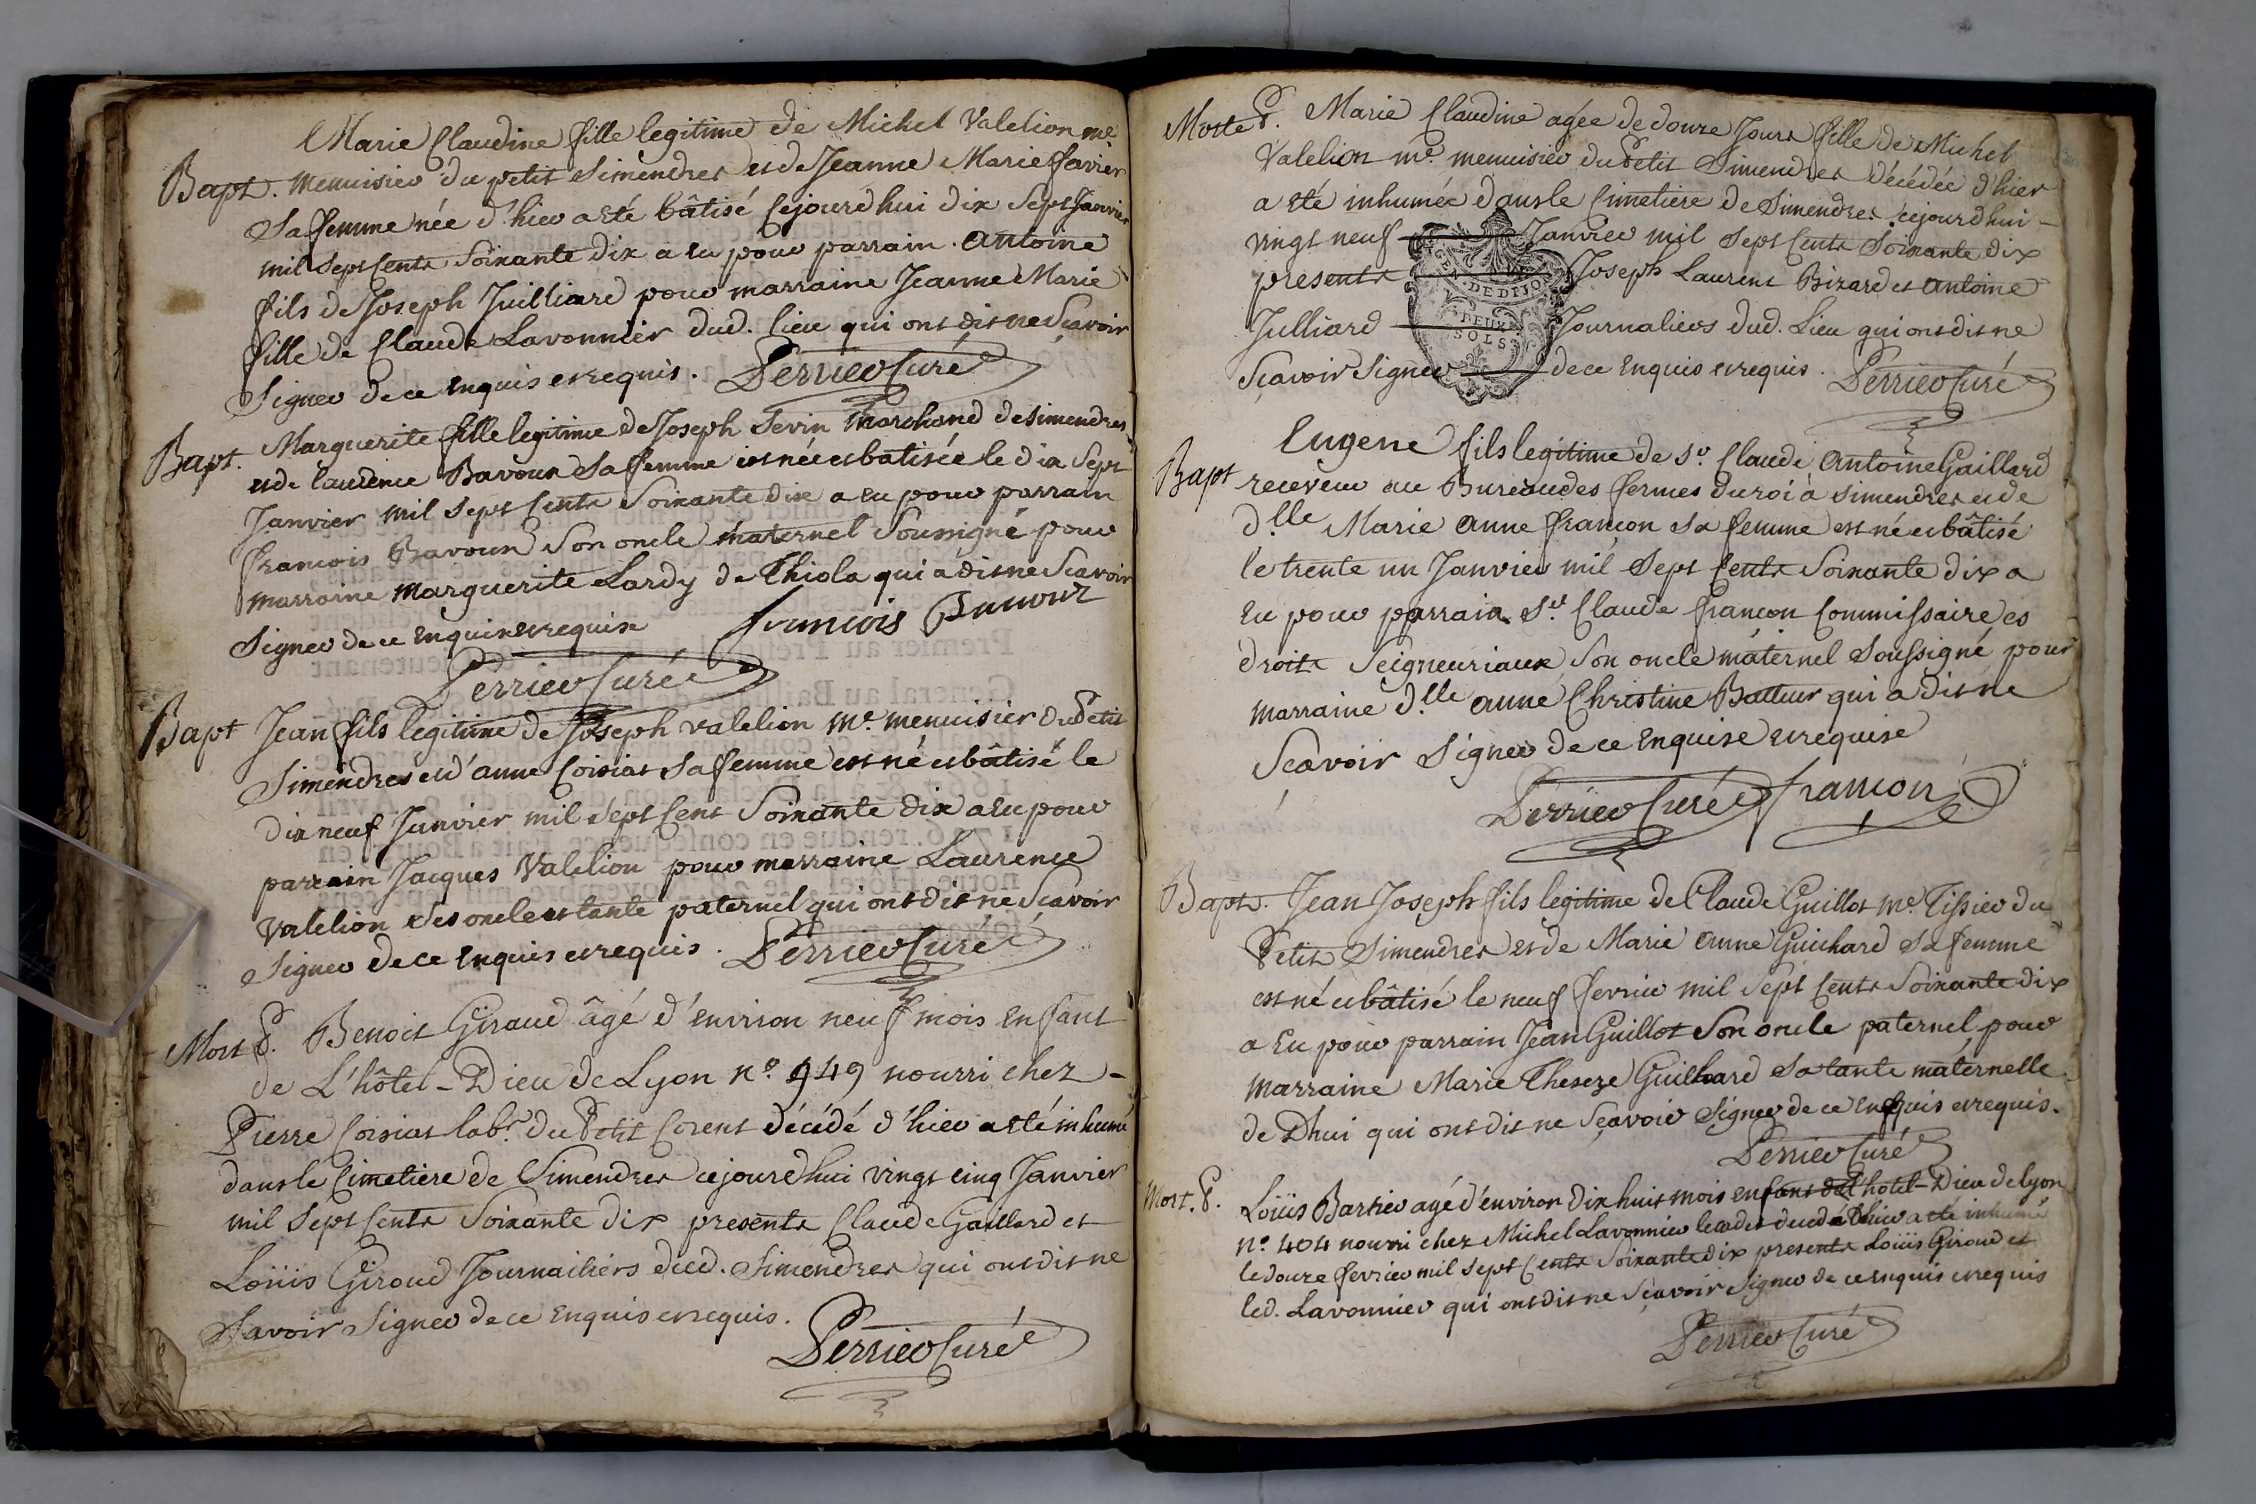 Marie Claudine fille legitime de Michel Valelion me.
Bapt. menuisier du petit Simendres et de Jeanne Marie favier
Sa femme née d'hier a eté bâtisé cejourdhui dix Sept Janvier
mil Sept Cents Soixante Dix a eu pour parrain. antoine
fils de Joseph Juilliard pour marraine Jeanne Marie
fille de Claude Lavonnier dud. lieu qui ont dit ne Scavoir
Signer de ce enquis et requis. Perrier Curé
Bapt. Marguerite fille legitime de Joseph Sevin marchand de Simendres
et de laurence Bavoux Sa femme est née et batisée le dix Sept
Janvier mil Sept Cents Soixante dix a eu pour parrain
francois Bavoux Son oncle maternel Soussigné pour
marraine Marguerite Lardy de Thiola qui a dit ne Scavoir
Signer de ce enquise et requise francois Bavoux
Perrier Curé
Bapt Jean fils legitime de Joseph valelion Me. menuisier du Petit
Simendres et d'anne Coisiat Sa femme est né et bâtisé le
dix neuf Janvier mil Sept Cent Soixante dix a eu pour
parrain Jacques Valelion pour marraine Laurence
Valelion Ses oncle et tante paternel qui ont dit ne Scavoir
Signer de ce enquis et requis. Perrier Curé
Mort P. Benoit Giraud âgé d'environ neuf mois enfant
de L'hôtel-Dieu de Lyon no. 949 nourri chez -
Pierre Coisiat labr. du Petit Corent décédé d'hier a eté inhumé
dans le Cimetiere de Simendres cejourdhui vingt cinq Janvier
mil Sept Cents Soixante dix presents Claude Gaillard et
Loüis Giroud Journailiers dud. Simendres qui ont dit ne
Savoir Signer de ce enquis et requis.
Perrier Curé
Morte P. Marie Claudine agée de douze Jours fille de Michel
Valelion me. menuisier du Petit Simendres décédée d'hier
a eté inhumée dans le Cimetiere de Simendres cejourdhui -
vingt neuf Janvier mil Sept Cents Soixante Dix
presents Joseph Laurent Bizard et antoine
Julliard Journaliers dud. Lieu qui ont dit ne
Sçavoir Signer de ce enquis et requis. Perrier Curé
GEN. DE DIJON
DEUX
SOLS
Eugene fils legitime de Sr. Claude Antoine Gaillard
Bapt receveur au Bureau des fermes du roi à Simendres et de
dlle Marie Anne françon Sa femme est né et bâtisé
le trente un Janvier mil Sept Cents Soixante dix a
eu pour parrain Sr. Claude francon Commissaire es
droits Seigneuriaux Son oncle maternel Soussigné pour
marraine dlle anne Christine Batteur qui a dit ne
Scavoir Signer de ce enquise et requise
Perrier Curé francon
Bapt. Jean Joseph fils legitime de Claude Guillot me. Tissier du
Petit Simendres et de Marie Anne Guichard Sa femme
est né et bâtisé le neuf fevrier mil Sept Cents Soixante dix
a eu pour parrain Jean Guillot Son oncle paternel pour
marraine Marie Thereze Guichard Sa tante maternelle
de Dhui qui ont dit ne Sçavoir Signer de ce enquis et requis.
Perrier Curé
Mort. P. Loüis Bartier agé d'environ dix huit mois enfant de l'hôtel-Dieu de lyon
no. 404 nourri chez Michel Lavonnier le cadet a eté inhumé
le douze fevrier mil Sept Cents Soixante dix presents Loüis Giroud et
led. Lavonnier qui ont dit ne Sçavoir Signer de ce enquis et requis
Perrier Curé